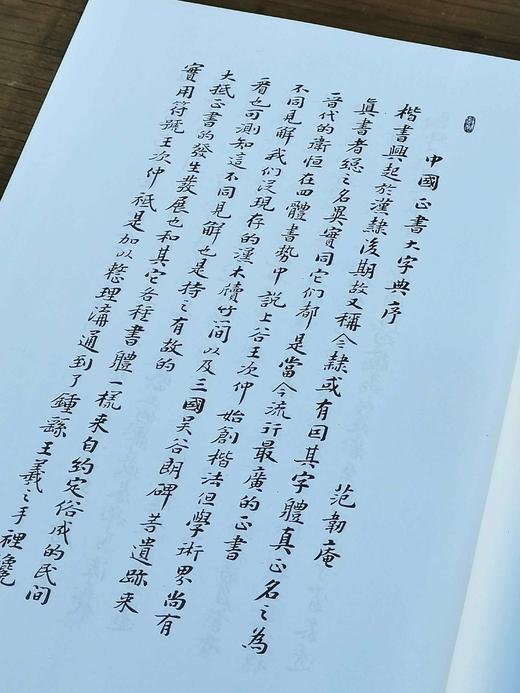 中國正書大字典序
范韌庵
楷書興起於漢隸後期故又稱今隸或有因其字體真正名之為
真書者總之名異實同它們都是當今流行最廣的正書
晉代的衛恒在四體書勢中說上谷王次仲始創楷法但學術界尚有
不同見解我們從現存的漢木牘竹簡以及三國吴谷朗碑等遺跡來
看也可測知這不同見解也是持之有故的
大抵正書的發生發展也和其它各種書體一樣來自約定俗成的民間
實用符號王次仲祇是加以整理溝通到了鍾繇王羲之手裡纔